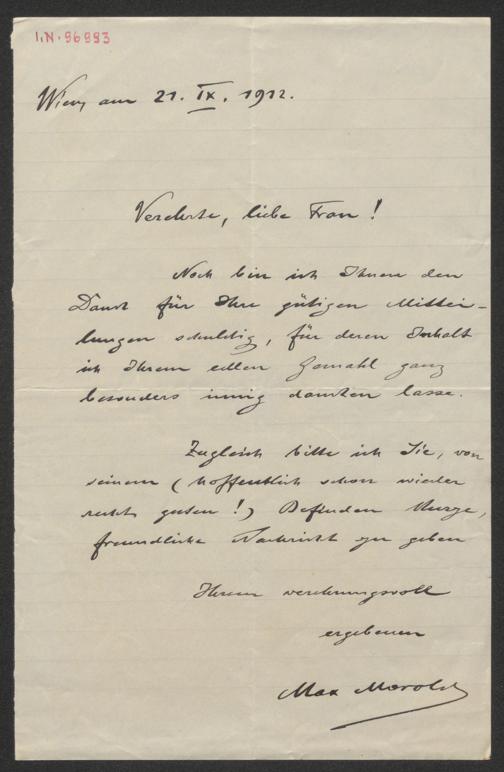 I.N. 96993
Wien, am 21. IX. 1912.
Verehrte, liebe Frau!
Noch bin ich Ihnen den
Dank für Ihre gütigen Mittei-
lungen schuldig, für deren Inhalt
ich Ihrem edlen Gemahl ganz
besonders innig danken lasse.
Zugleich bitte ich Sie, von
seinem (hoffentlich schon wieder
recht guten!) Befinden kurze,
freundliche Nachricht zu geben
Ihrem verehrungsvoll
ergebenen
Max Morold